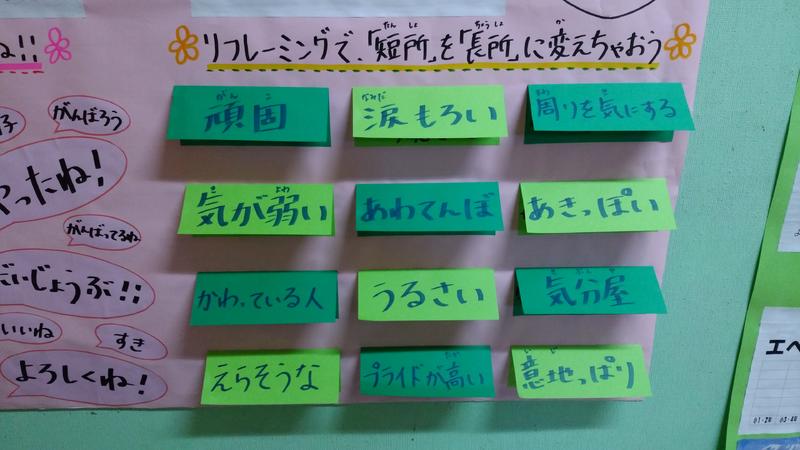 リフレーミングで、「短所」を「長所」に変えちゃおう
頑固
涙もろい
周りを気にする
気が弱い
あわてんぼ
あきっぽい
かわっている人
うるさい
気分屋
えらそうな
プライドが高い
意地っぱり
ね!!
子
がんばろう
やったね!
がんばってるね
だいじょうぶ!!
いいね
すき
よろしくね!
エペ